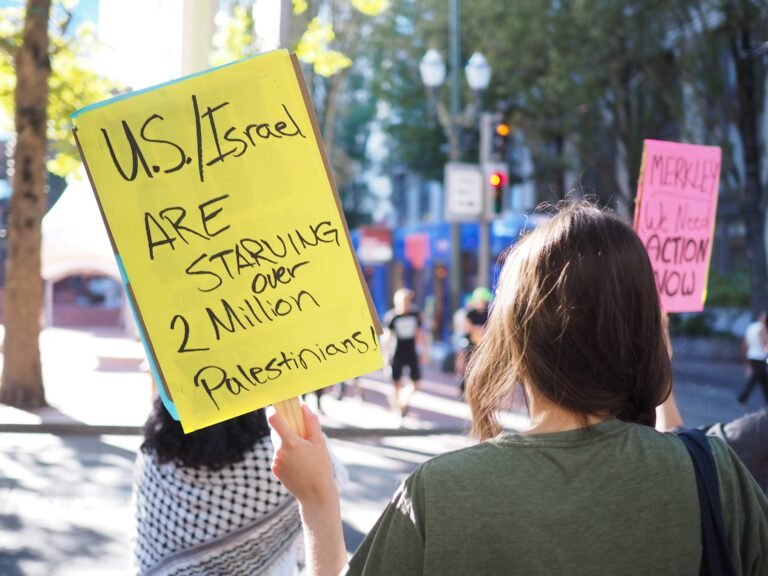 U.S./Israel
ARE
STARVING
over
2 Million
Palestinians!
MERKLEY
We Need
ACTION
NOW